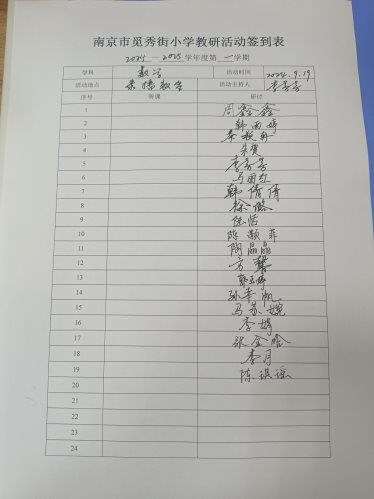 南京市觅秀街小学教研活动签到表
2024 — 2025 学年度第 一 学期
学科 数学 活动时间 2024.9.19
活动地点 录播教室 活动主持人 李芳芳
序号 听课 研讨
1 周鑫鑫
2 韩雨婷
3
4 朱赟
5 李芳芳
6 马国红
7 韩倩倩
8 徐璐
9 陆恬
10 陈颖菲
11 陶晶晶
12 方馨
13
14 孙幸帆
15 马苏婉
16 李娟
17 张金晗
18 李月
19 陈淇瑶
20
21
22
23
24